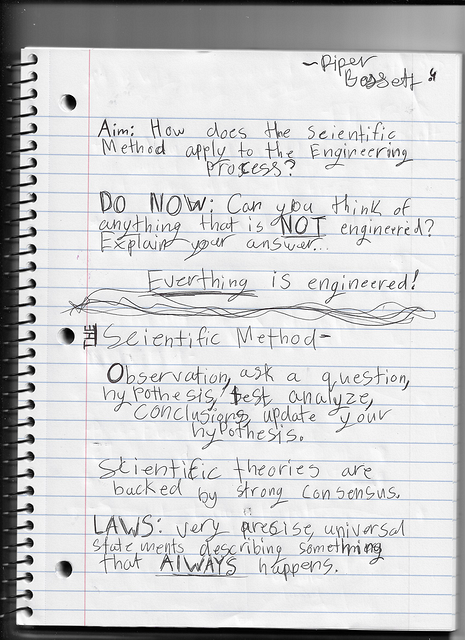 ~Piper
Bassett
Aim: How does the scientific
Method apply to the Engineering
process?
DO NOW: Can you think of
anything that is NOT engineered?
Explain your answer...
Everthing is engineered!
THE Scientific Method-
Observation, ask a question,
hypothesis, test analyze,
conclusions, update your
hypothesis.
Scientific theories are
backed by strong consensus.
LAWS: very precise, universal
statements describing something
that AlWAYS happens.